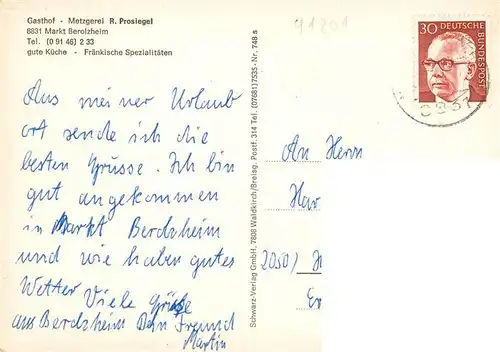 Gasthof - Metzgerei R. Prosiegel
8831 Markt Berolzheim
Tel. (0 91 46) 2 33
gute Küche - Fränkische Spezialitäten
41801
30 DEUTSCHE BUNDESPOST
Aus meiner Urlaub
ort sende ich die
besten Grüsse. Ich bin
gut angekommen
in Markt Berolzheim
und wie haben gutes
Wetter Viele Grüße
aus Berolzheim Dein Freund
Martin
Schwarz-Verlag GmbH, 7808 Waldkirch/Breisg. Postf. 314 Tel. (07681) 7535 · Nr. 748 s
An Herrn
Har
2050